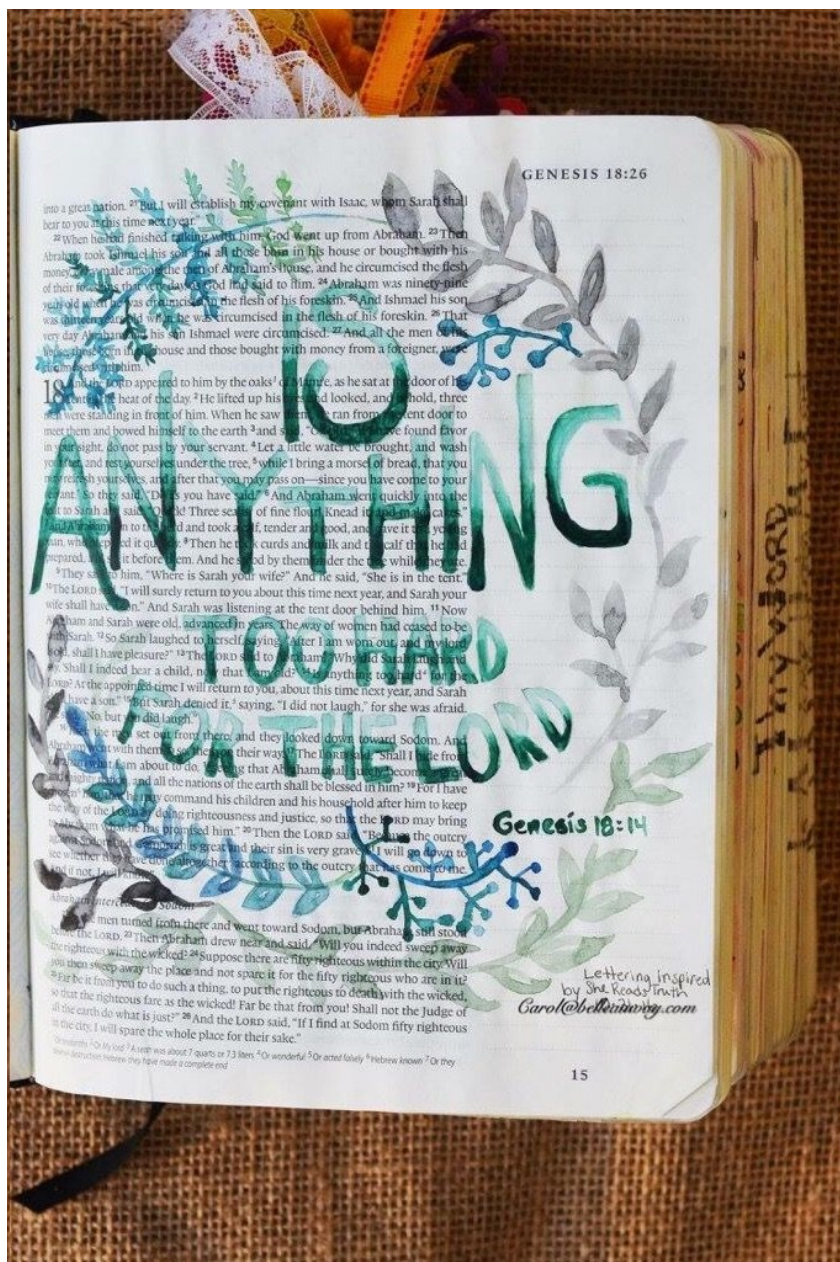 GENESIS 18:26
into a great nation. 21 But I will establish my covenant with Isaac, whom Sarah shall
bear to you at this time next year."
22 When he had finished talking with him, God went up from Abraham. 23 Then
Abraham took Ishmael his son and all those born in his house or bought with his
money, male among the men of Abraham's house, and he circumcised the flesh
of their that very day God had said to him. 24 Abraham was ninety-nine
years old when he was circumcised in the flesh of his foreskin. 25 And Ishmael his son
was thirteen years old when he was circumcised in the flesh of his foreskin. 26 That
very day Abraham and his son Ishmael were circumcised. 27 And all the men of his
house, those born in the house and those bought with money from a foreigner, were
circumcised with him.
18 And the LORD appeared to him by the oaks of Mamre, as he sat at the door of his
tent in the heat of the day. 2 He lifted up his eyes and looked, and behold, three
men were standing in front of him. When he saw them, he ran from the tent door to
meet them and bowed himself to the earth 3 and said, have found favor
in your sight, do not pass by your servant. 4 Let a little water be brought, and wash
your feet, and rest yourselves under the tree, 5 while I bring a morsel of bread, that you
may refresh yourselves, and after that you may pass on—since you have come to your
servant." So they said, "Do as you have said." 6 And Abraham went quickly into the
tent to Sarah and said, "Quick! Three seahs of fine flour! Knead it, and make cakes."
7 And Abraham ran to the herd and took a calf, tender and good, and gave it to a young
man, who prepared it quickly. 8 Then he took curds and milk and the calf that he had
prepared, and set it before them. And he stood by them under the tree while they ate.
9 They said to him, "Where is Sarah your wife?" And he said, "She is in the tent."
10 The LORD said, "I will surely return to you about this time next year, and Sarah your
wife shall have a son." And Sarah was listening at the tent door behind him. 11 Now
Abraham and Sarah were old, advanced in years. The way of women had ceased to be
with Sarah. 12 So Sarah laughed to herself, saying, "After I am worn out, and my lord
is old, shall I have pleasure?" 13 The LORD said to Abraham, "Why did Sarah laugh and
say, 'Shall I indeed bear a child, now that I am old?' 14 Is anything too hard for the
LORD? At the appointed time I will return to you, about this time next year, and Sarah
shall have a son." 15 But Sarah denied it, saying, "I did not laugh," for she was afraid.
He said, "No, but you did laugh."
16 Then the men set out from there, and they looked down toward Sodom. And
Abraham went with them to set them on their way. 17 The LORD said, "Shall I hide from
Abraham what I am about to do, 18 seeing that Abraham shall surely become a great
and mighty nation, and all the nations of the earth shall be blessed in him? 19 For I have
chosen him, that he may command his children and his household after him to keep
the way of the LORD by doing righteousness and justice, so that the LORD may bring
to Abraham what he has promised him." 20 Then the LORD said, "Because the outcry
against Sodom and Gomorrah is great and their sin is very grave, 21 I will go down to
see whether they have done altogether according to the outcry that has come to me.
And if not, I will know."
Abraham Intercedes for Sodom
22 So the men turned from there and went toward Sodom, but Abraham still stood
before the LORD. 23 Then Abraham drew near and said, "Will you indeed sweep away
the righteous with the wicked? 24 Suppose there are fifty righteous within the city. Will
you then sweep away the place and not spare it for the fifty righteous who are in it?
25 Far be it from you to do such a thing, to put the righteous to death with the wicked,
so that the righteous fare as the wicked! Far be that from you! Shall not the Judge of
all the earth do what is just?" 26 And the LORD said, "If I find at Sodom fifty righteous
in the city, I will spare the whole place for their sake."
1 Or terebinths 2 Or My lord 3 A seah was about 7 quarts or 7.3 liters 4 Or wonderful 5 Or acted falsely 6 Hebrew known 7 Or they
deserve destruction; Hebrew they have made a complete end
15
IS
ANYTHING
TOO HARD
FOR THE LORD
Genesis 18:14
Lettering inspired
by She Reads Truth
Carol@belleauway.com
Thy WORD